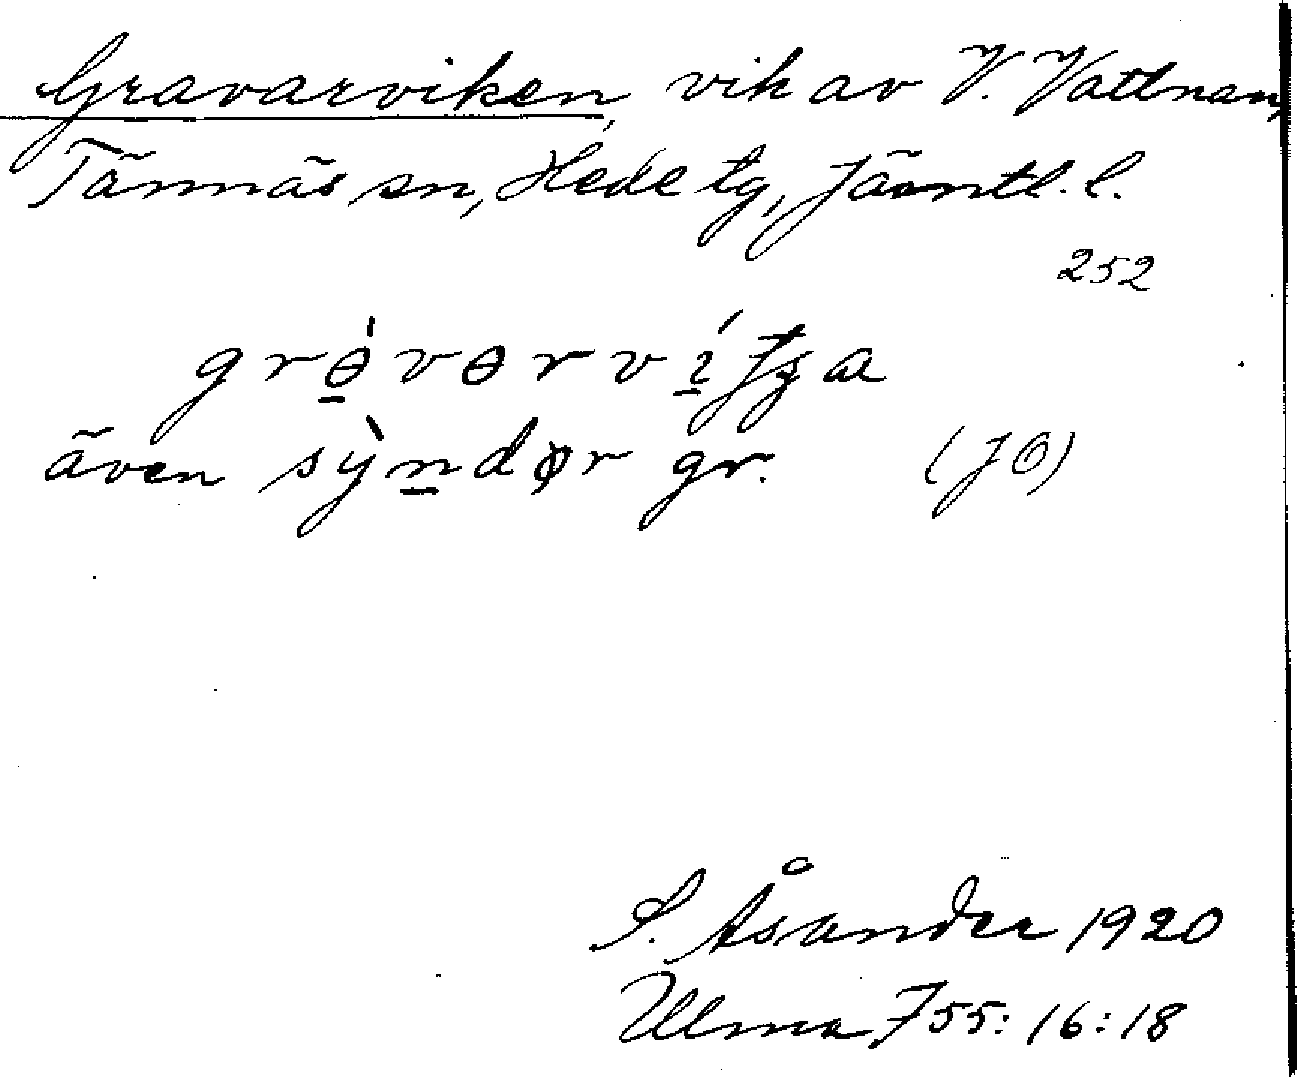 Gravarviken, vik av V. Vattnan,
Tännäs sn, Hede tg, Jämtl. l.
252
grɵ̲́vɵrvɪ̲́ʈʂa
även sy̌n̲dør gr. (JÖ)
S. Åsander 1920
Ulma 755: 16:18